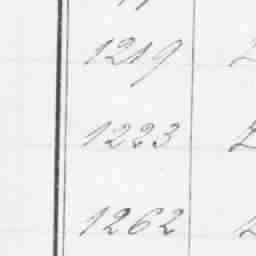 1219
1223
1262